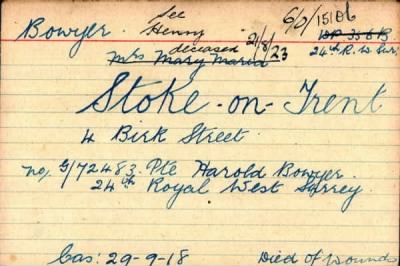 Bowyer. see Henny 6/D/15106
deceased 21/8/23 24th R. W. Sur.
Mrs Mary Maria
Stoke-on-Trent
4 Birk Street.
No, G/72483. Pte Harold Bowyer.
24th Royal West Surrey.
Cas: 29-9-18 Died of Wounds